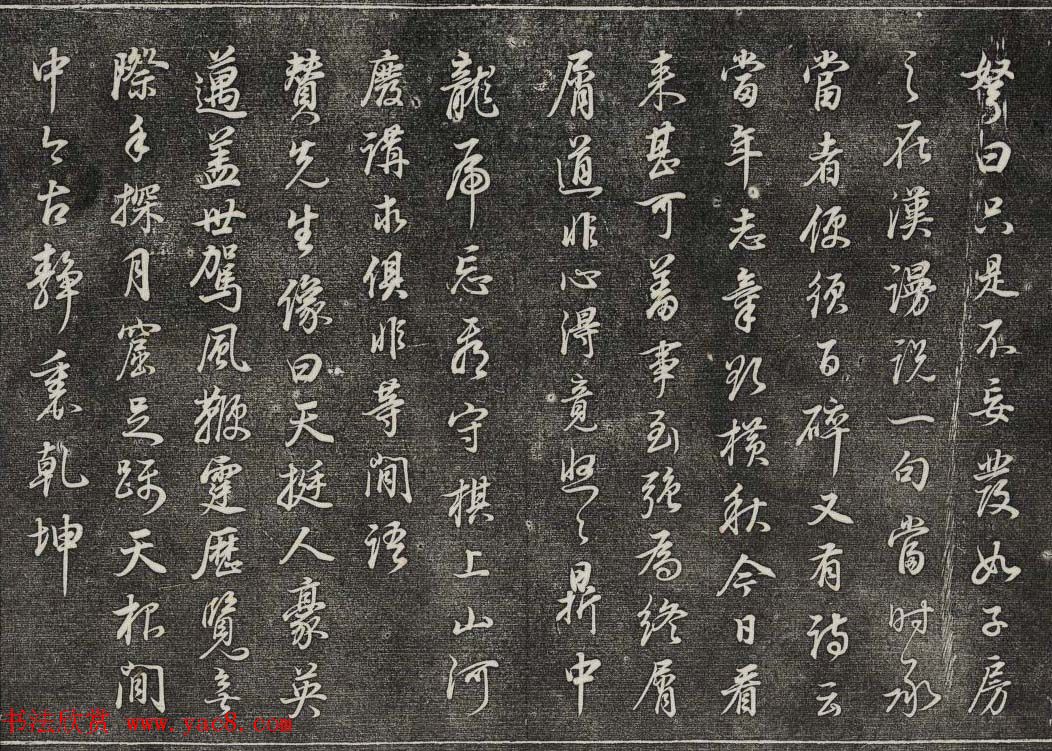 弩曰只是不妄發如子房
之在漢謾說一句當時承
當者便須百碎又有詩云
當年志氣欲橫秋今日看
來甚可羞事到強為終屑
屑道非心得竟悠悠鼎中
龍虎忘看守棋上山河
廢講求俱非等閒語
贊先生像曰天挺人豪英
邁蓋世駕風鞭霆歷覽無
際手探月窟足躡天根閒
中今古靜裏乾坤
书法欣赏 www.yac8.com